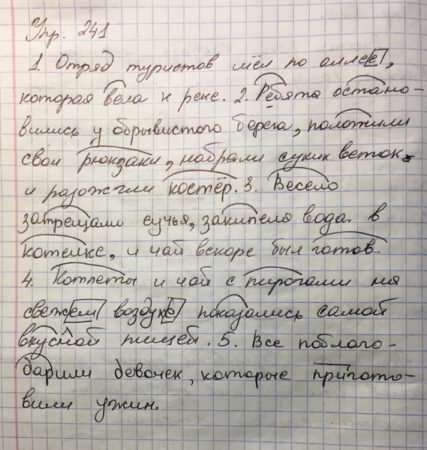 Упр. 241
1. Отряд туристов шёл по аллее,
которая вела к реке. 2. Ребята остано-
вились у обрывистого берега, положили
свои рюкзаки, набрали сухих веток
и разожгли костёр. 3. Весело
затрещали сучья, закипела вода в
котелке, и чай вскоре был готов.
4. Котлеты и чай с пирогами на
свежем воздухе показались самой
вкусной пищей. 5. Все поблаго-
дарили девочек, которые пригото-
вили ужин.